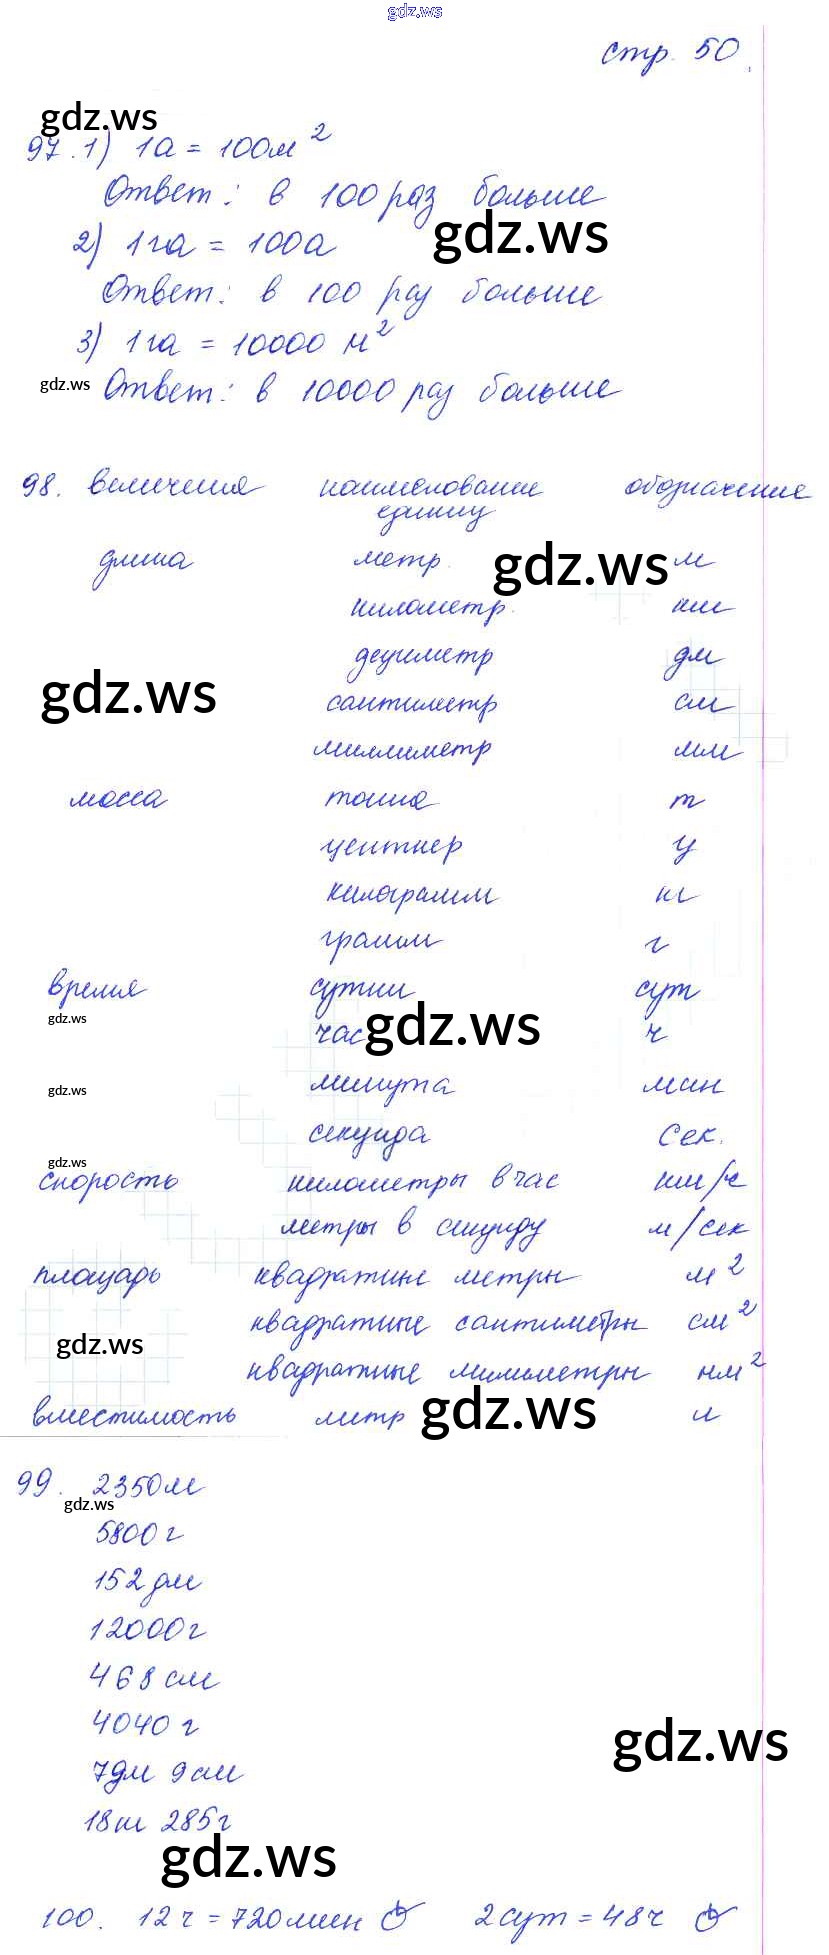 gdz.ws
стр. 50.
gdz.ws
97. 1) 1а = 100м²
Ответ: в 100 раз больше
gdz.ws
2) 1 га = 100а
Ответ: в 100 раз больше
3) 1 га = 10000 м²
gdz.ws Ответ: в 10000 раз больше
98. величения наименование обозначение
единиц
длина метр. м
gdz.ws
километр. км
дециметр дм
gdz.ws
сантиметр см
миллиметр мм
масса тонна т
центнер ц
килограмм кг
грамм г
время сутки сут
gdz.ws
час gdz.ws ч
минута мин
gdz.ws
секунда сек.
gdz.ws
скорость километры в час км/ч
метры в секунду м/сек
площадь квадратные метры м²
квадратные сантиметры см²
gdz.ws
квадратные миллиметры мм²
вместимость литр gdz.ws л
99. 2350м
gdz.ws
5800 г
152 дм
12000г
468 см
4040 г
gdz.ws
7дм 9 см
18кг 285г
gdz.ws
100. 12 ч = 720 мин 2 сут = 48ч